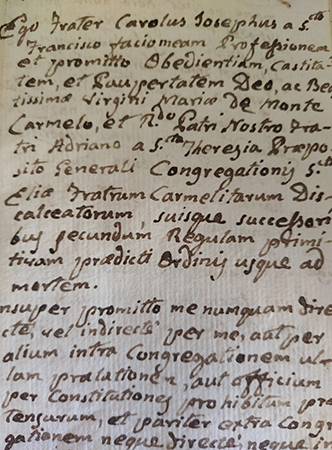 Ego Frater Carolus Josephus a Sto
Francisco facio meam Professionem
et promitto Obedientiam, Castita-
tem, et Paupertatem Deo, ac Bea
tissimæ Virgini Mariæ De Monte
Carmelo, et R.do Patri Nostro Fra-
tri Adriano a Sta Theresia Præpo-
sito Generali Congregationis Sti
Eliæ Fratrum Carmelitarum Dis-
calceatorum, suisque successori
bus secundum Regulam primi-
tivam prædicti Ordinis usque ad
mortem.
nsuper promitto me numquam dire
cte, vel indirecte per me, aut per
alium intra Congregationem ul-
lam prælationem, aut officium
per Constitutiones prohibitum præ
tensurum, et pariter extra Congre
gationem neque directe, neque in